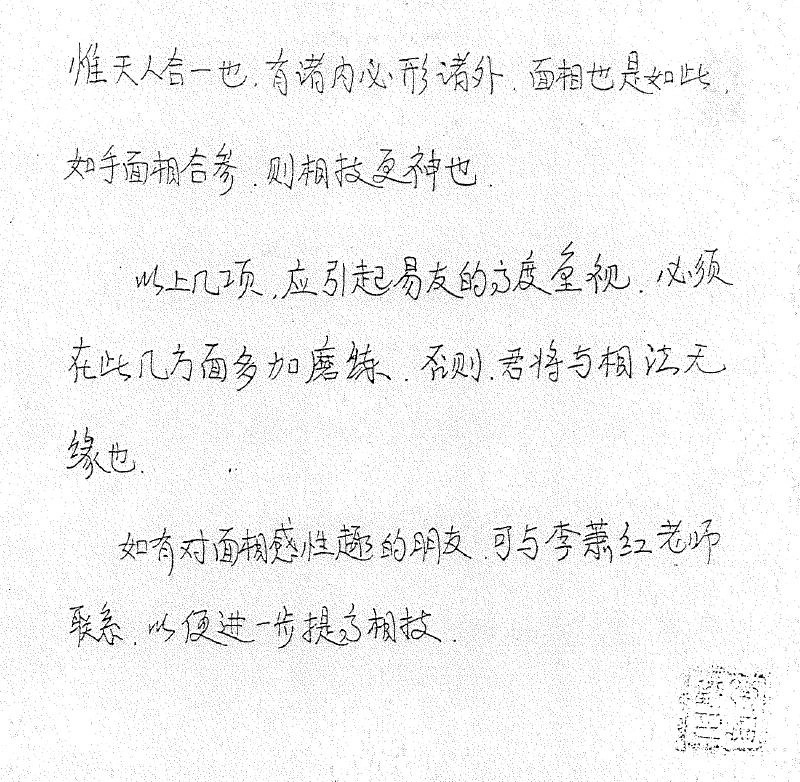 惟天人合一也.有诸内必形诸外.面相也是如此.
如手面相合参.则相技更神也.
以上几项,应引起易友的高度重视.必须
在此几方面多加磨练.否则.君将与相法无
缘也.
如有对面相感性趣的朋友.可与李萧红老师
联系.以便进一步提高相技.